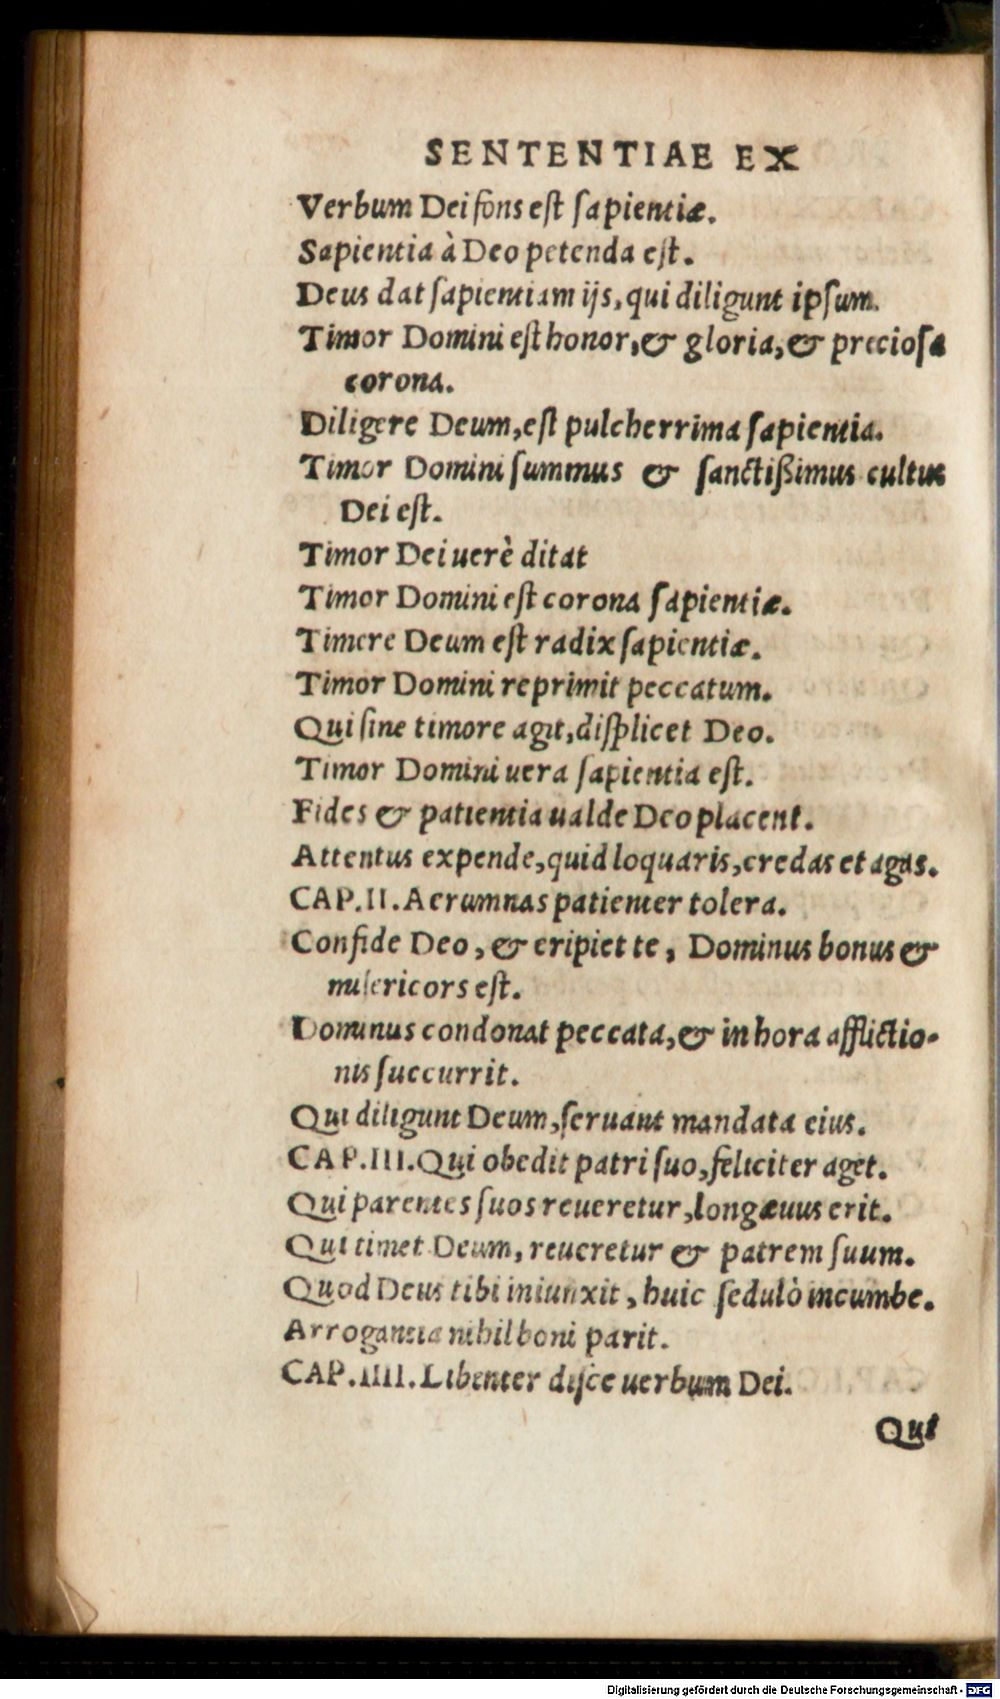 SENTENTIAE EX
Verbum Dei fons est sapientiæ.
Sapientia à Deo petenda est.
Deus dat sapientiam ijs, qui diligunt ipsum.
Timor Domini est honor, & gloria, & preciosa
corona.
Diligere Deum, est pulcherrima sapientia.
Timor Domini summus & sanctißimus cultus
Dei est.
Timor Dei uerè ditat
Timor Domini est corona sapientiæ.
Timere Deum est radix sapientiæ.
Timor Domini reprimit peccatum.
Qui sine timore agit, displicet Deo.
Timor Domini uera sapientia est.
Fides & patientia ualde Deo placent.
Attentus expende, quid loquaris, credas et agas.
CAP. II. Aerumnas patienter tolera.
Confide Deo, & eripiet te, Dominus bonus &
misericors est.
Dominus condonat peccata, & in hora afflictio-
nis succurrit.
Qui diligunt Deum, seruant mandata eius.
CAP. III. Qui obedit patri suo, feliciter aget.
Qui parentes suos reueretur, longæuus erit.
Qui timet Deum, reueretur & patrem suum.
Quod Deus tibi iniunxit, huic sedulò incumbe.
Arrogantia nihil boni parit.
CAP. IIII. Libenter disce uerbum Dei.
Qui
Digitalisierung gefördert durch die Deutsche Forschungsgemeinschaft - DFG